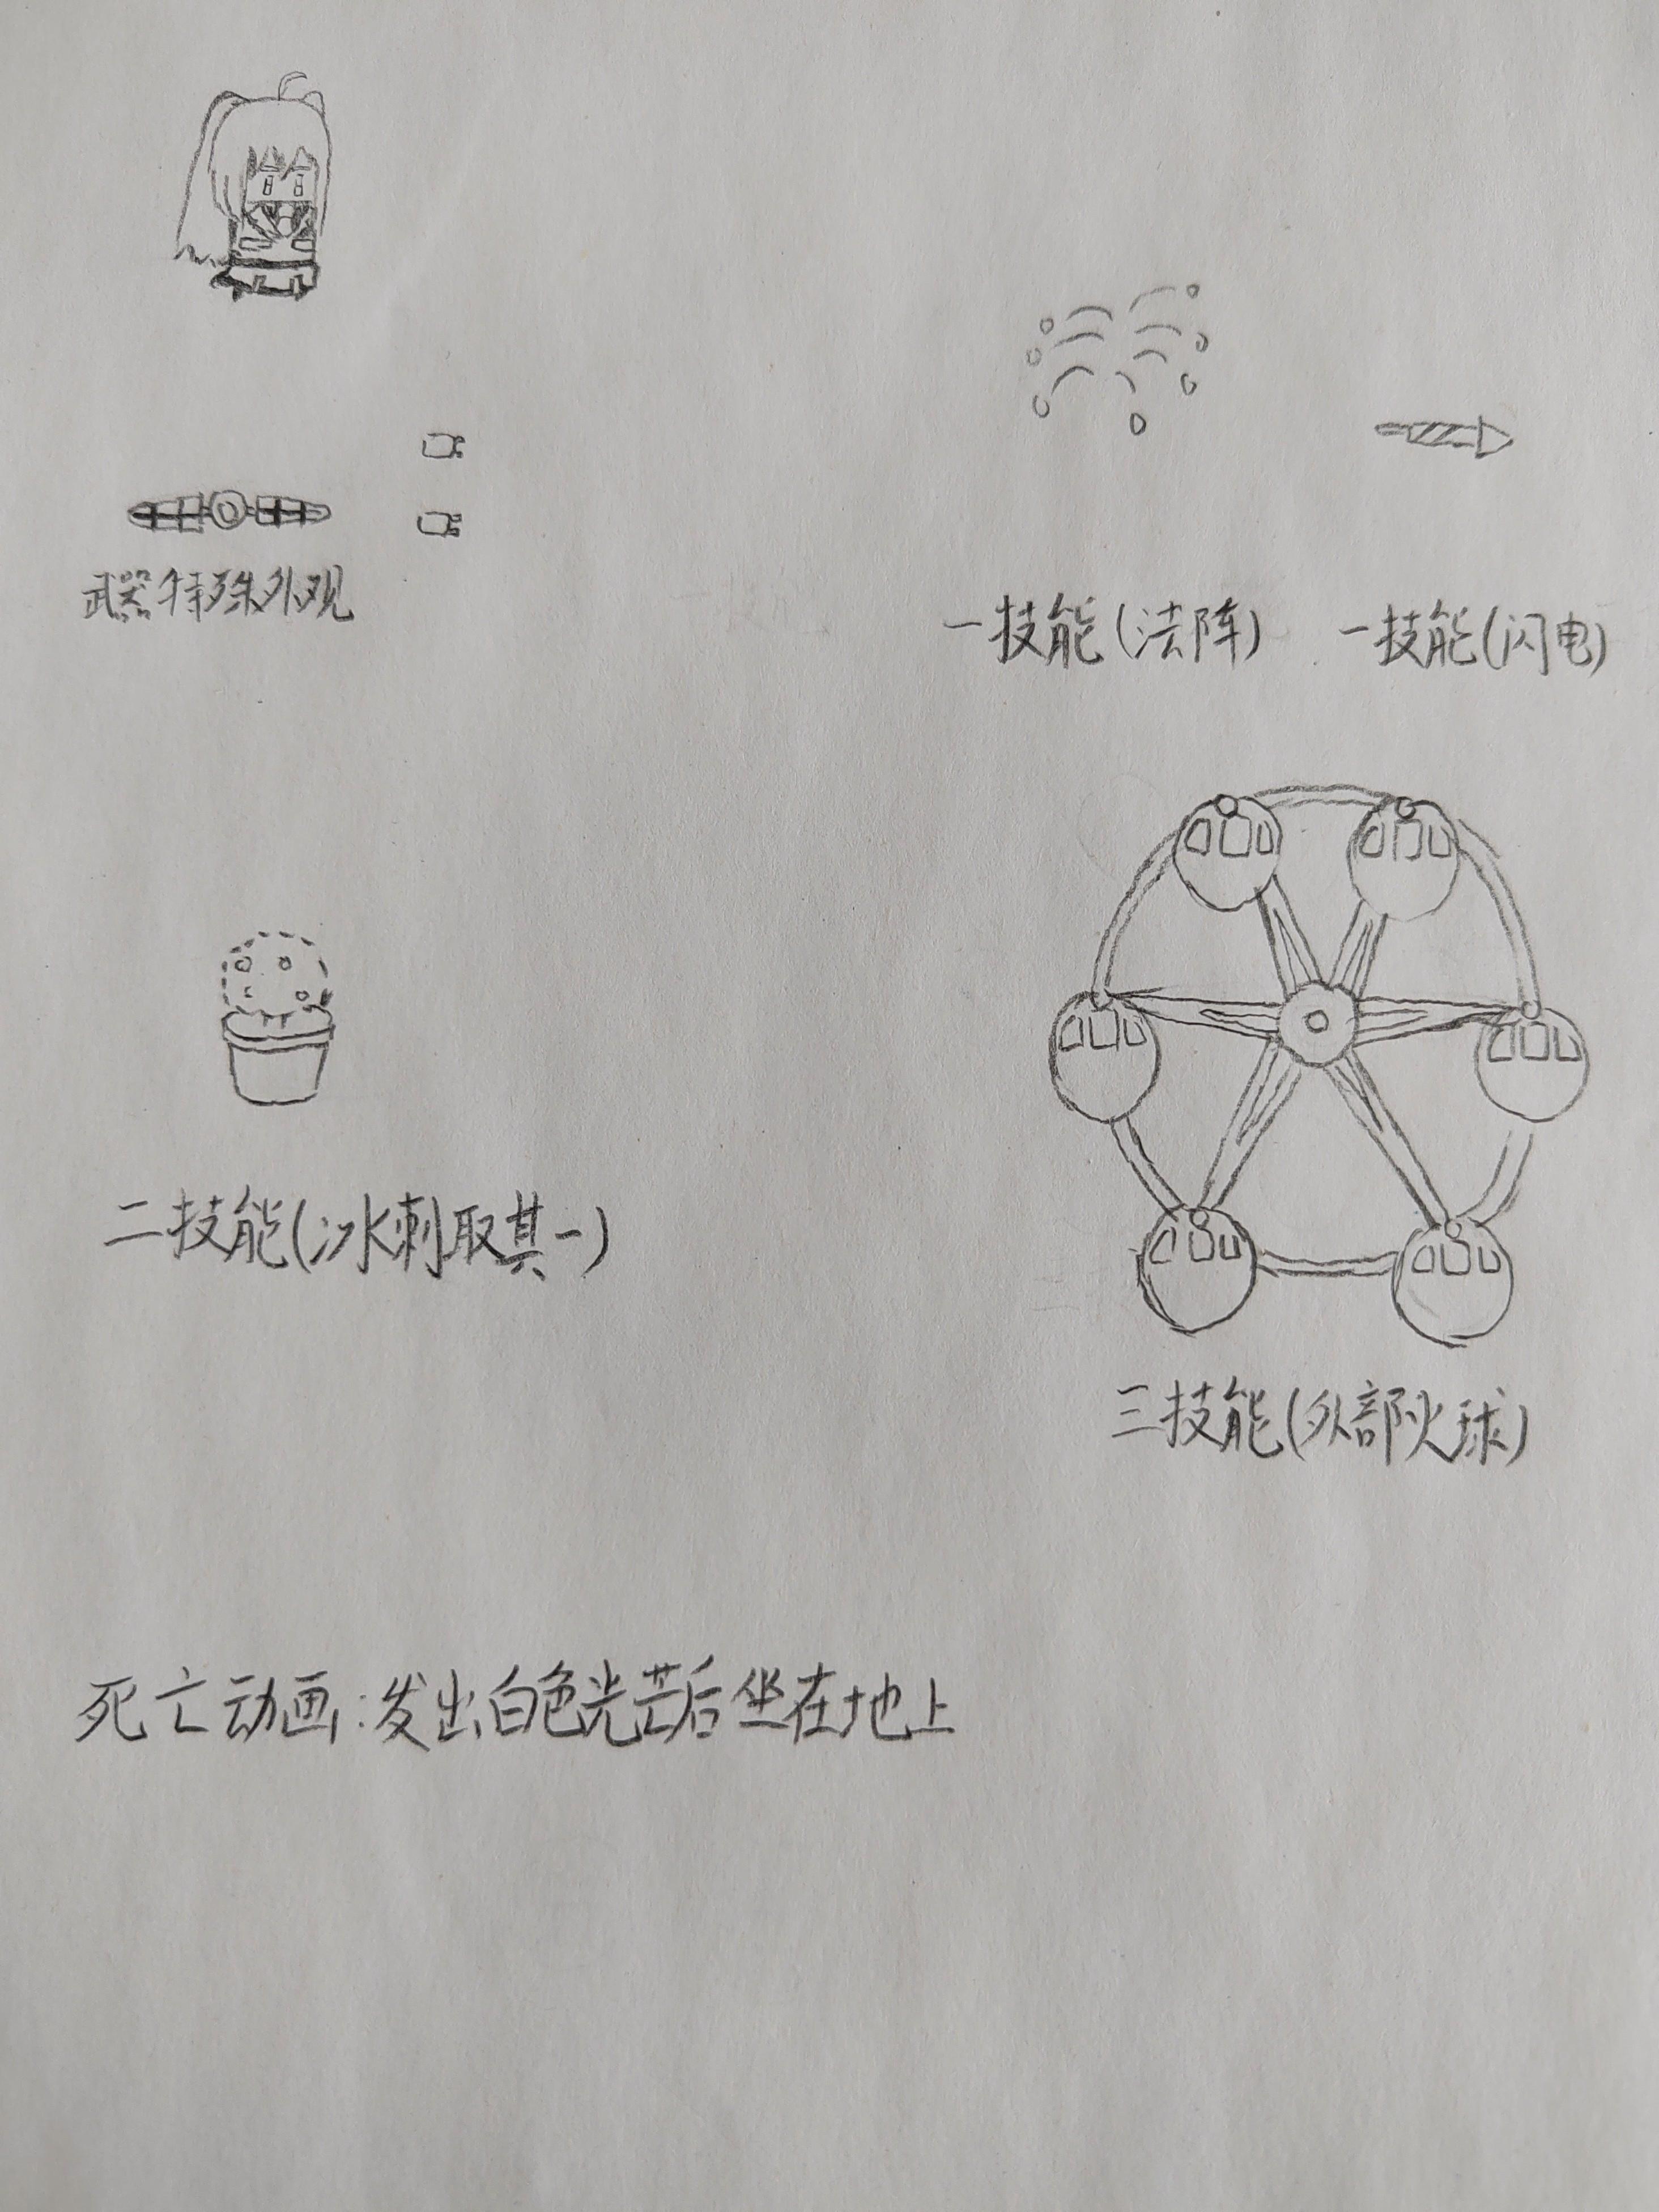 武器特殊外观
一技能(法阵)
一技能(闪电)
二技能(冰刺取其一)
三技能(外部火球)
死亡动画:发出白色光芒后坐在地上